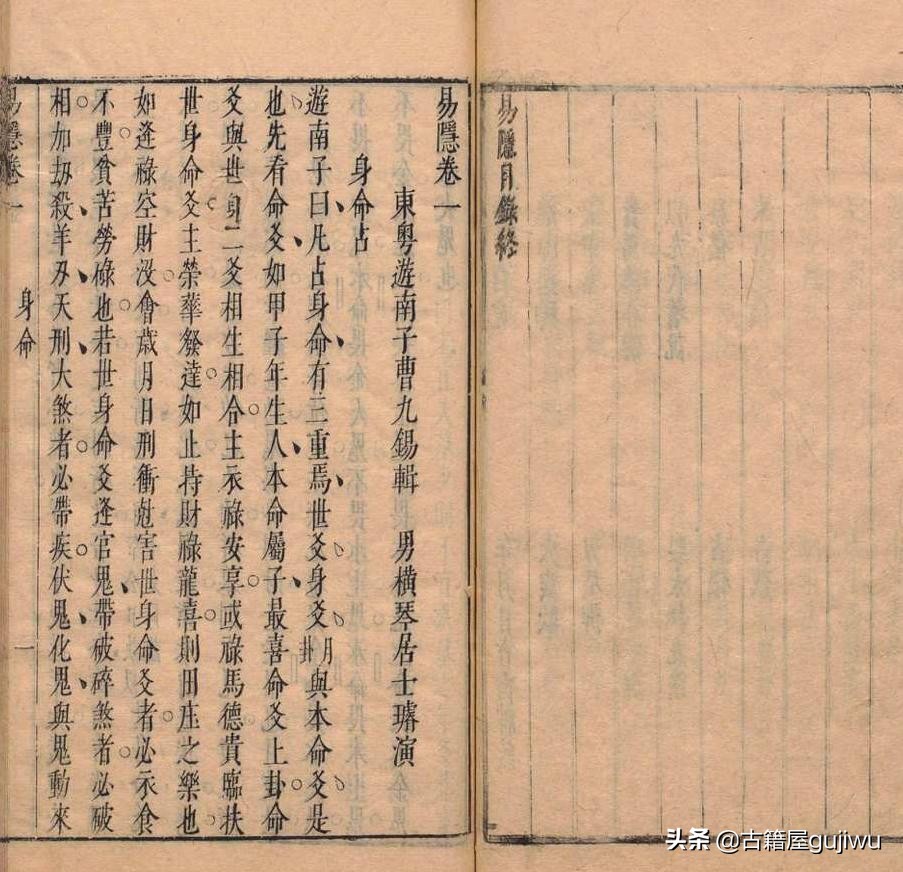 易隱目錄終
易隱卷一
東粵遊南子曹九錫輯 男橫琴居士璿演
身命占
遊南子曰凡占身命有三重焉世爻身爻月卦與本命爻是
也先看命爻如甲子年生人本命屬子最喜命爻上卦命
爻與世身二爻相生相合主衣祿安享或祿馬德貴臨扶
世身命爻主榮華發達如止持財祿龍喜則田庄之樂也
如逢祿空財沒會歲月日刑衝尅害世身命爻者必衣食
不豐貧苦勞碌也若世身命爻逢官鬼帶破碎煞者必破
相加劫殺羊刃天刑大煞者必帶疾伏鬼化鬼與鬼動來
易隱卷一 身命 一
头条 @古籍屋gujiwu